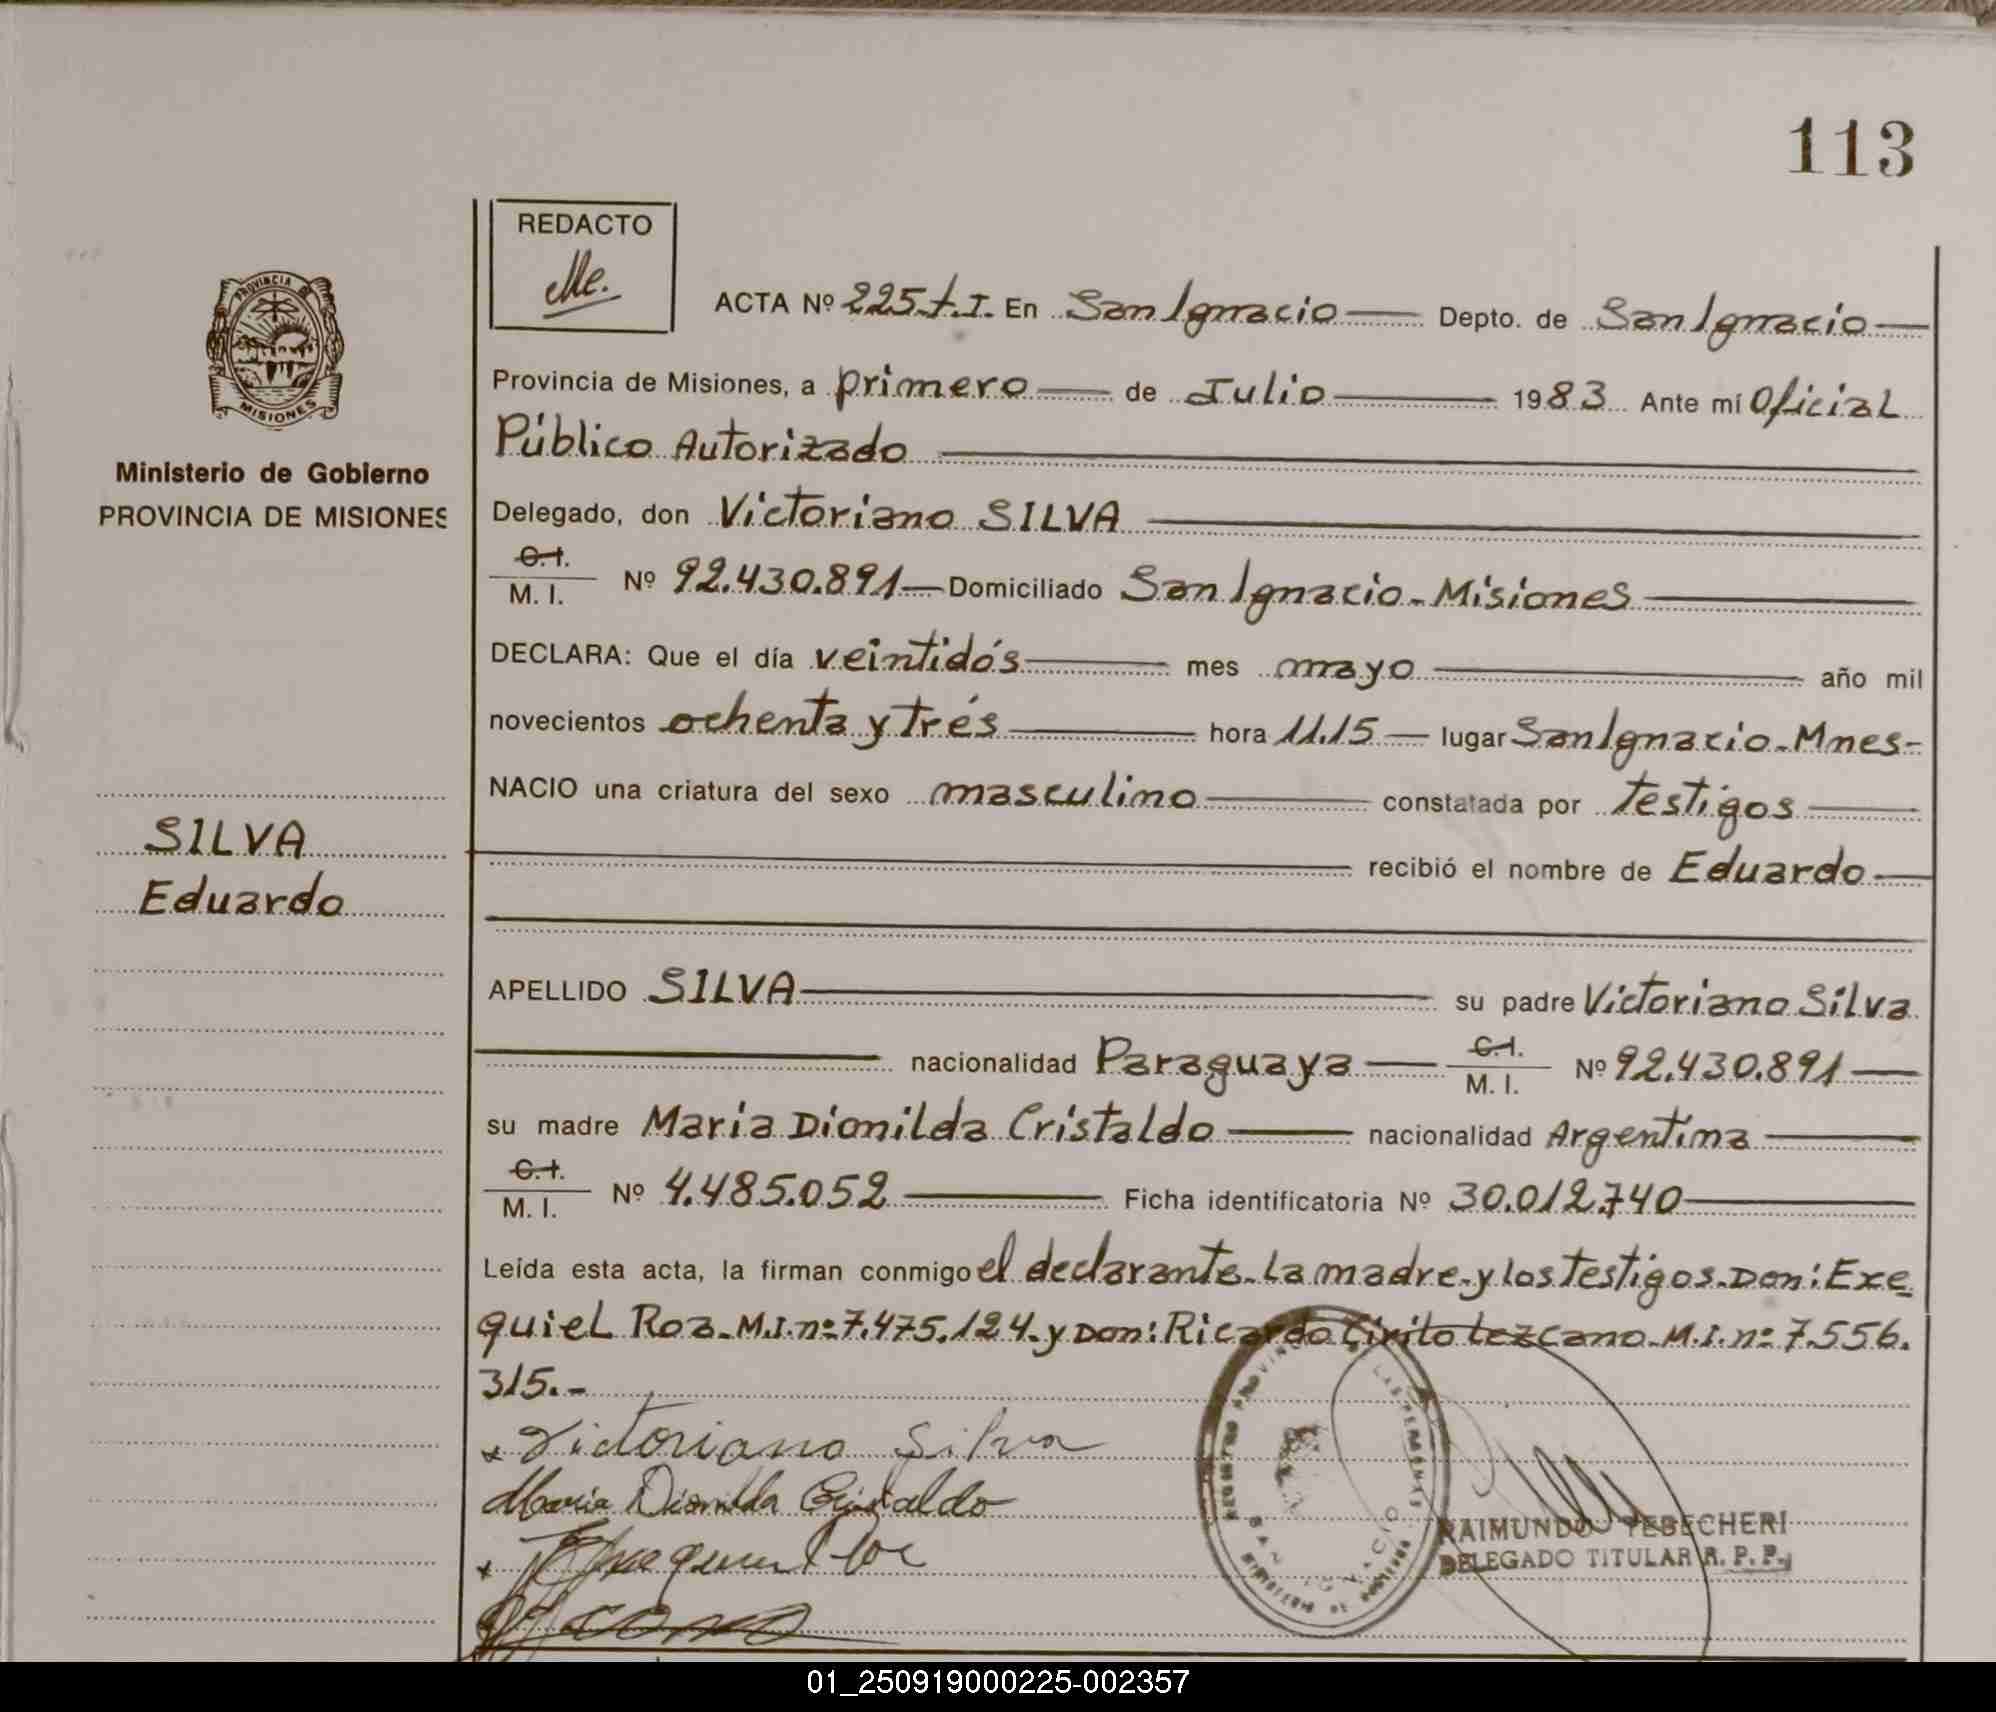 113
REDACTO
Me.
PROVINCIA DE
MISIONES
Ministerio de Gobierno
PROVINCIA DE MISIONES
ACTA Nº 225.T.I. En San Ignacio Depto. de San Ignacio
Provincia de Misiones, a primero de Julio 1983 Ante mí Oficial
Público Autorizado
Delegado, don Victoriano SILVA
C.I.
M. I. Nº 92.430.891 Domiciliado San Ignacio - Misiones
DECLARA: Que el día veintidós mes mayo año mil
novecientos ochenta y trés hora 11.15 lugar San Ignacio - Mnes-
NACIO una criatura del sexo masculino constatada por testigos
recibió el nombre de Eduardo
SILVA
Eduardo
APELLIDO SILVA su padre Victoriano Silva
nacionalidad Paraguaya C.I. M. I. Nº 92.430.891
su madre Maria Dionilda Cristaldo nacionalidad Argentina
C.I.
M. I. Nº 4.485.052 Ficha identificatoria Nº 30.012.740
Leída esta acta, la firman conmigo el declarante - La madre - y los testigos - Don: Exe
quiel Roa - M.I. nº 7.475.124. y Don: Ricardo Cirito Lezcano - M.I. nº 7.556.
315.-
Victoriano Silva
Maria Dionilda Cristaldo
REGISTRO PROVINCIAL DE LAS PERSONAS
SAN IGNACIO
RAIMUNDO YEBECHERI
DELEGADO TITULAR R. P. P.
01_250919000225-002357